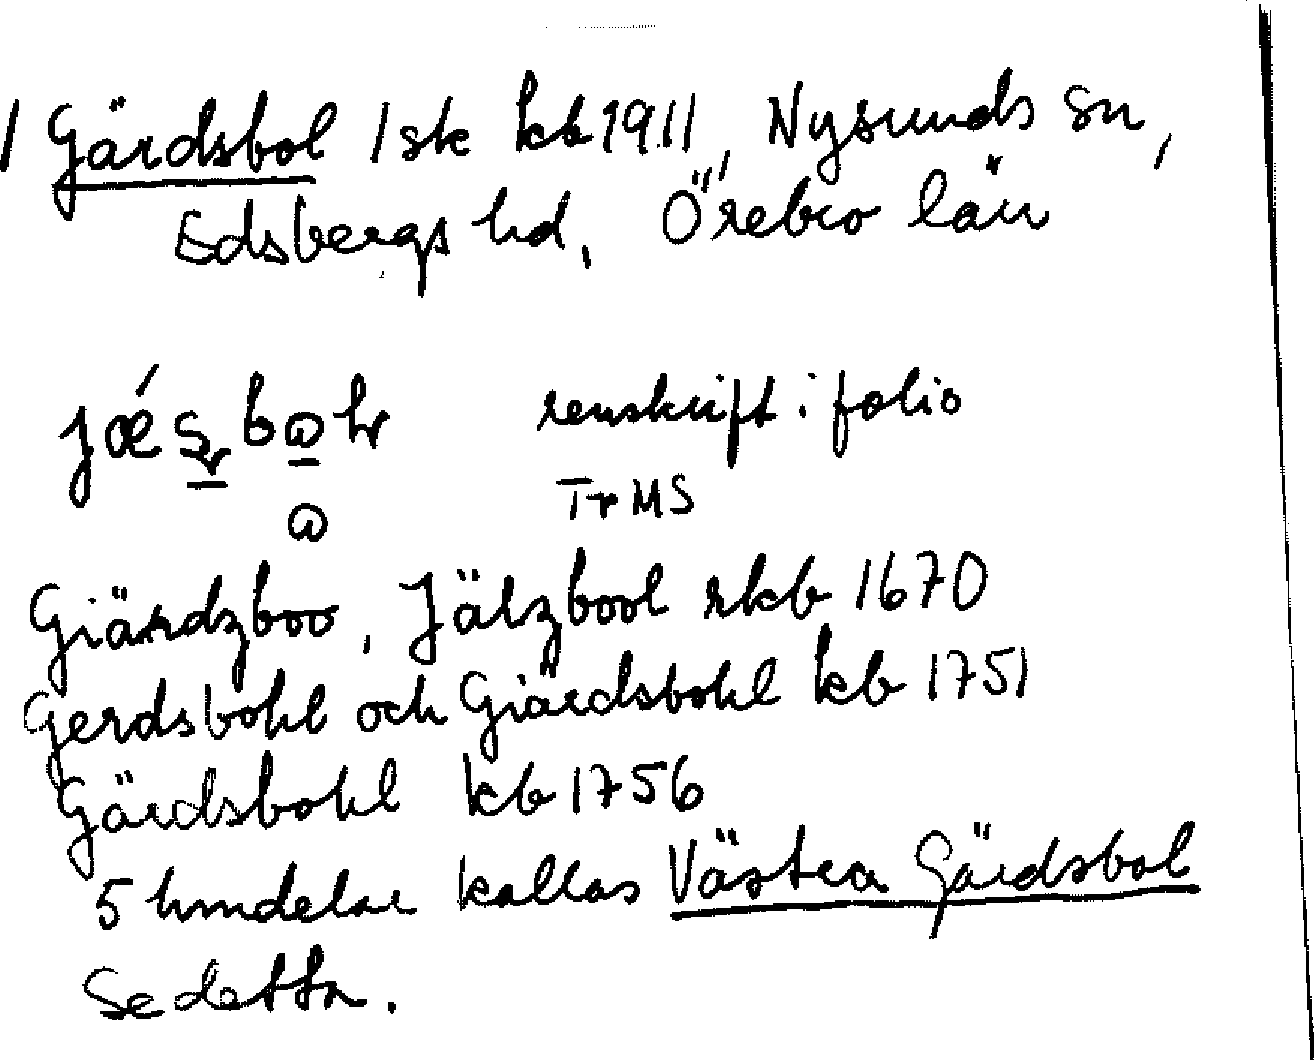 / Gärdsbol 1 sk kb 1911, Nysunds sn,
Edsbergs hd, Örebro län
renskrift i folio
TrMS
Giärdzboo, Jälzbool rkb 1670
Gerdsbohl och Giärdsbohl kb 1751
Gärdsbohl kb 1756
5 hmdelar kallas Västra Gärdsbol
Se detta.